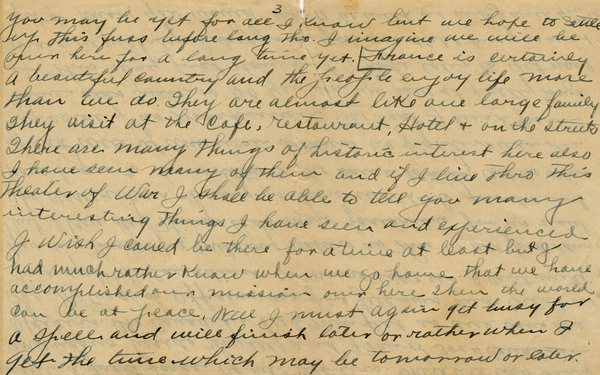 3
you may be yet for all I know but we hope to settle
up this fuss before long tho. I imagine we will be
over here for a long time yet. [France is certainly
a beautiful country and the people enjoy life more
than we do. They are almost like one large family
They visit at the Cafe, restaurant, Hotel + on the streets
There are many things of historic interest here also
I have seen many of them and if I live thro this
theater of War I shall be able to tell you many
interesting things I have seen and experienced
I wish I could be there for a time at least but I
had much rather know when we go home that we have
accomplished our mission over here then the world
can be at peace. Well I must again get busy for
a spell and will finish later or rather when I
get the time which may be tomorrow or later.